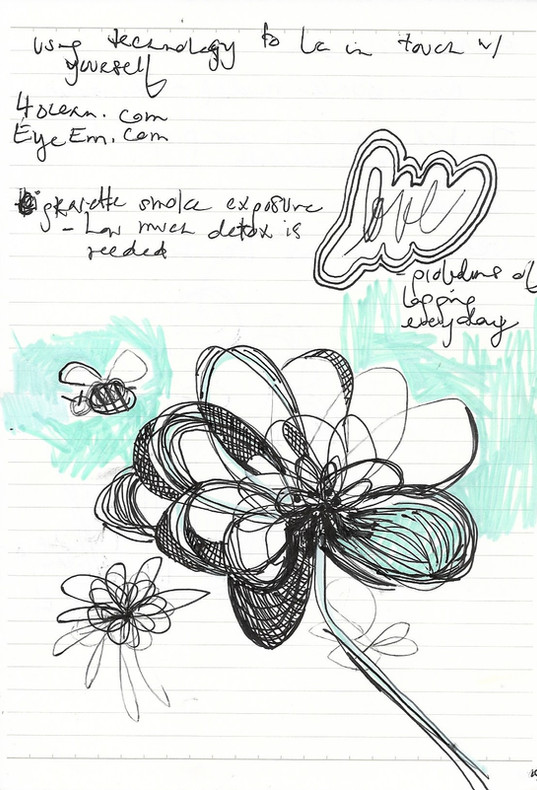 using technology to be in touch w/
yourself
EyeEm.com
cigarette smoke exposure
- how much detox is
needed
love
- problems of
logging
everyday